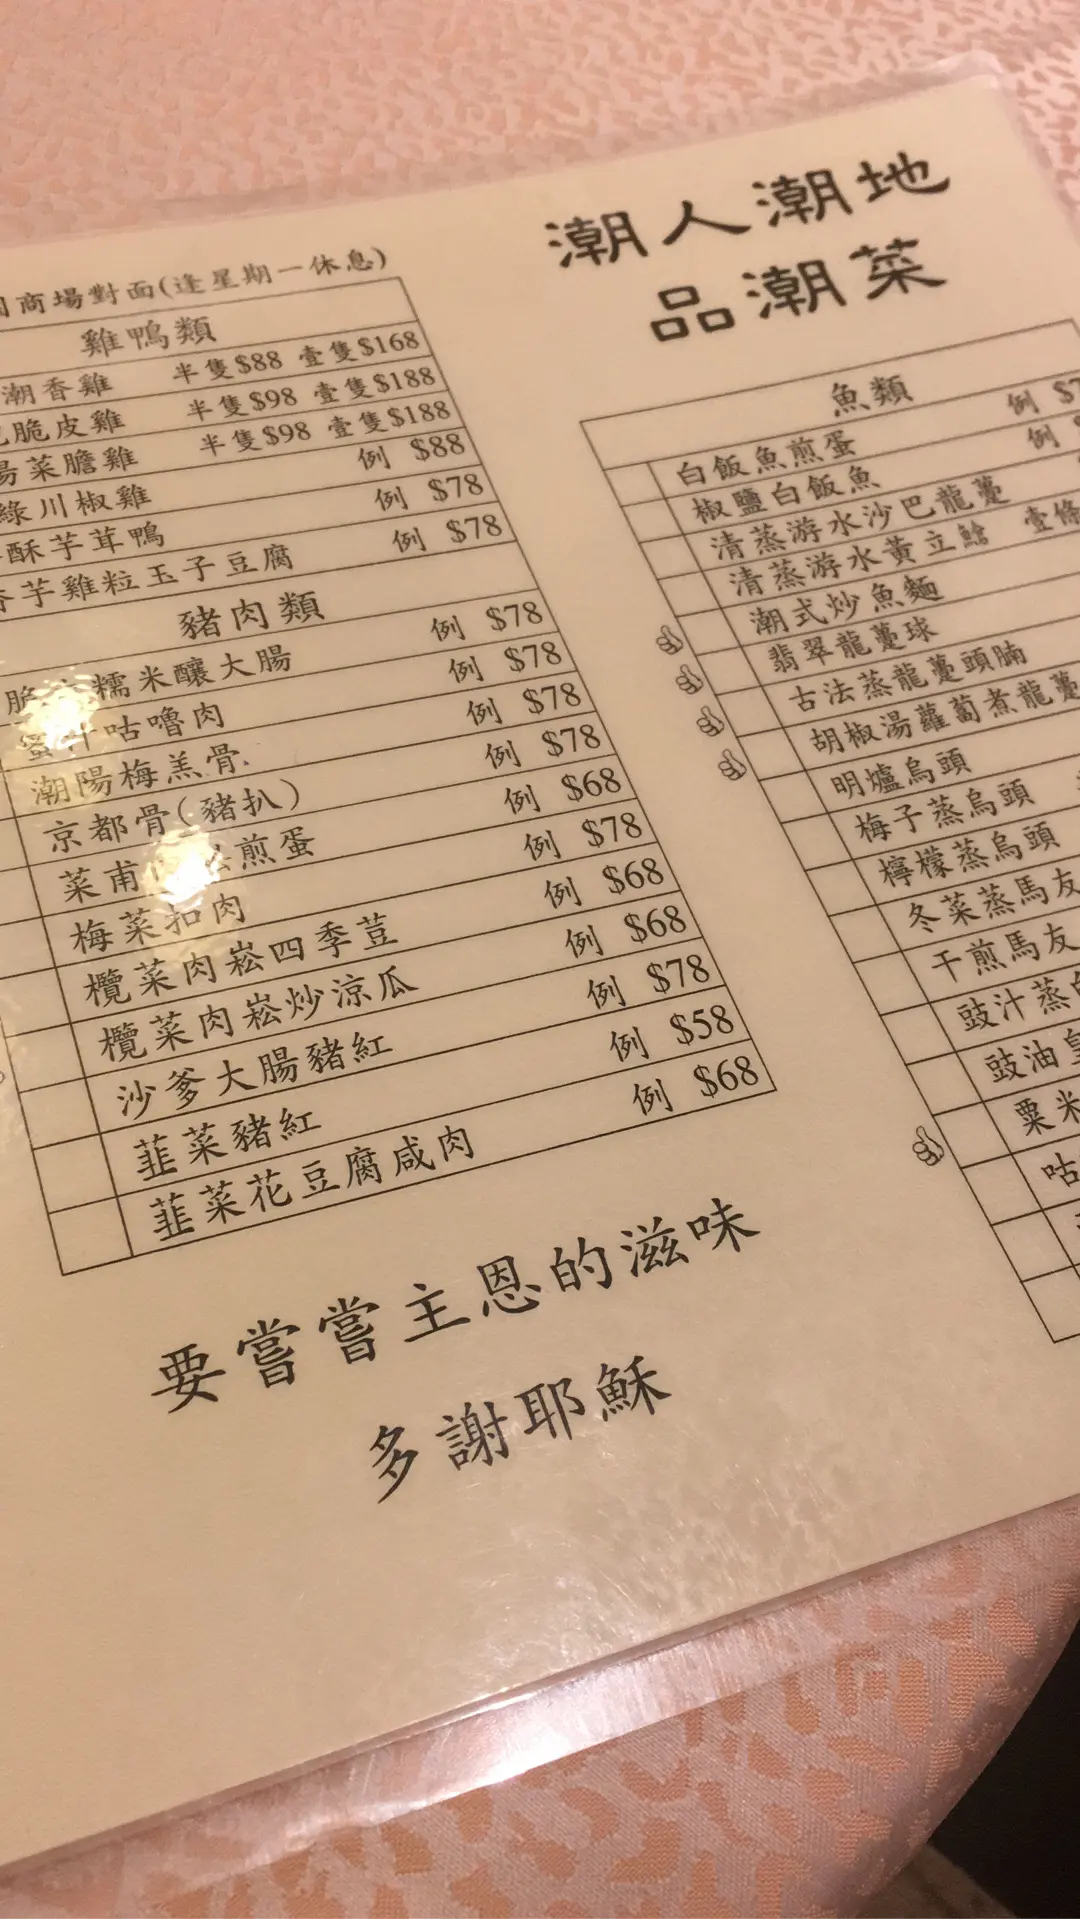 潮人潮地
品潮菜
商場對面(逢星期一休息)
雞鴨類
潮香雞 半隻$88 壹隻$168
脆皮雞 半隻$98 壹隻$188
菜膽雞 半隻$98 壹隻$188
川椒雞 例 $88
酥芋茸鴨 例 $78
芋雞粒玉子豆腐 例 $78
豬肉類
脆 糯米釀大腸 例 $78
咕嚕肉 例 $78
潮陽梅羔骨 例 $78
京都骨(豬扒) 例 $78
菜甫 煎蛋 例 $68
梅菜扣肉 例 $78
欖菜肉崧四季荳 例 $68
欖菜肉崧炒涼瓜 例 $68
沙爹大腸豬紅 例 $78
韮菜豬紅 例 $58
韮菜花豆腐咸肉 例 $68
要嘗嘗主恩的滋味
多謝耶穌
魚類
白飯魚煎蛋 例
椒鹽白飯魚 例
清蒸游水沙巴龍躉
清蒸游水黃立鯧 壹條
潮式炒魚麵
翡翠龍躉球
古法蒸龍躉頭腩
胡椒湯蘿蔔煮龍躉
明爐烏頭
梅子蒸烏頭
檸檬蒸烏頭
冬菜蒸馬友
干煎馬友
豉汁蒸
豉油皇
粟米
咕